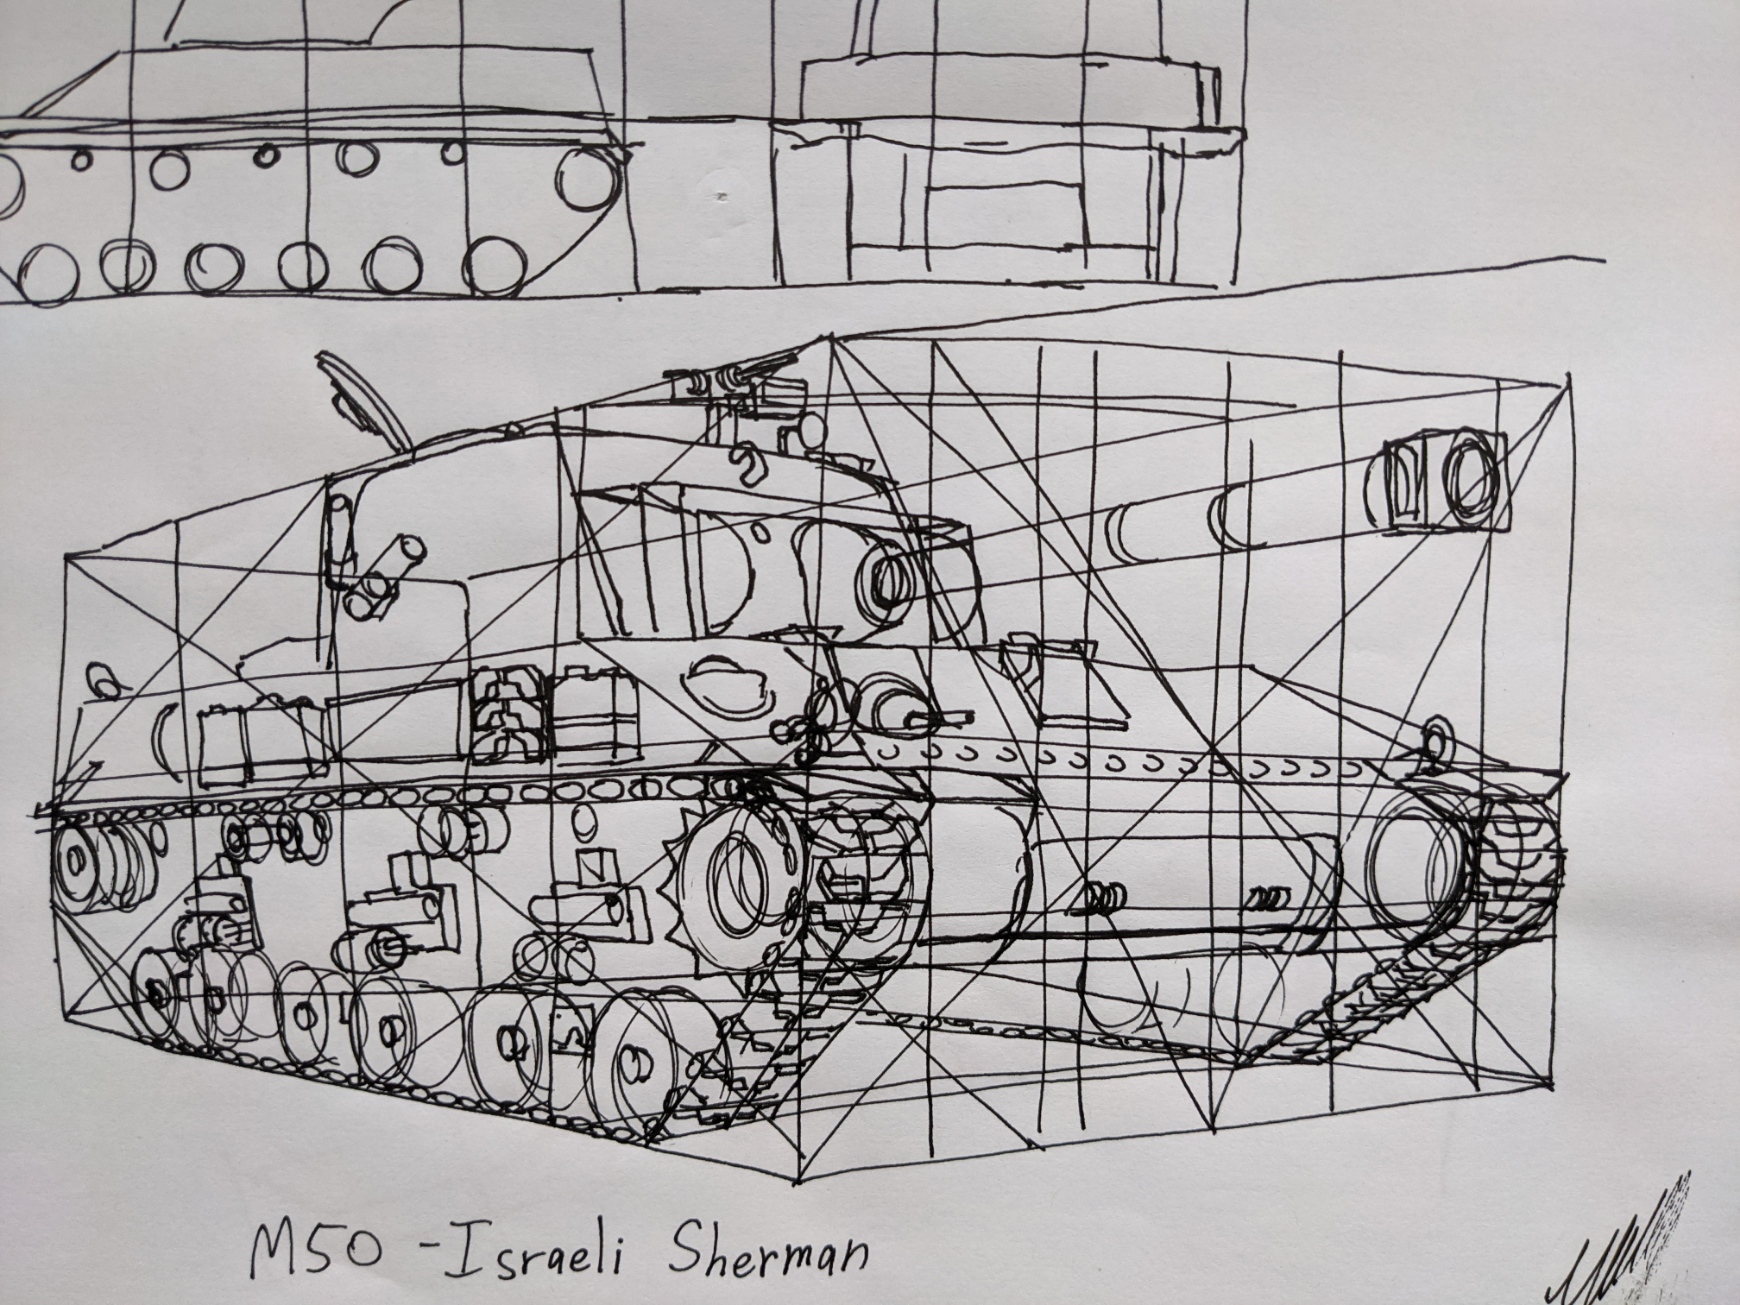 M50 - Israeli Sherman